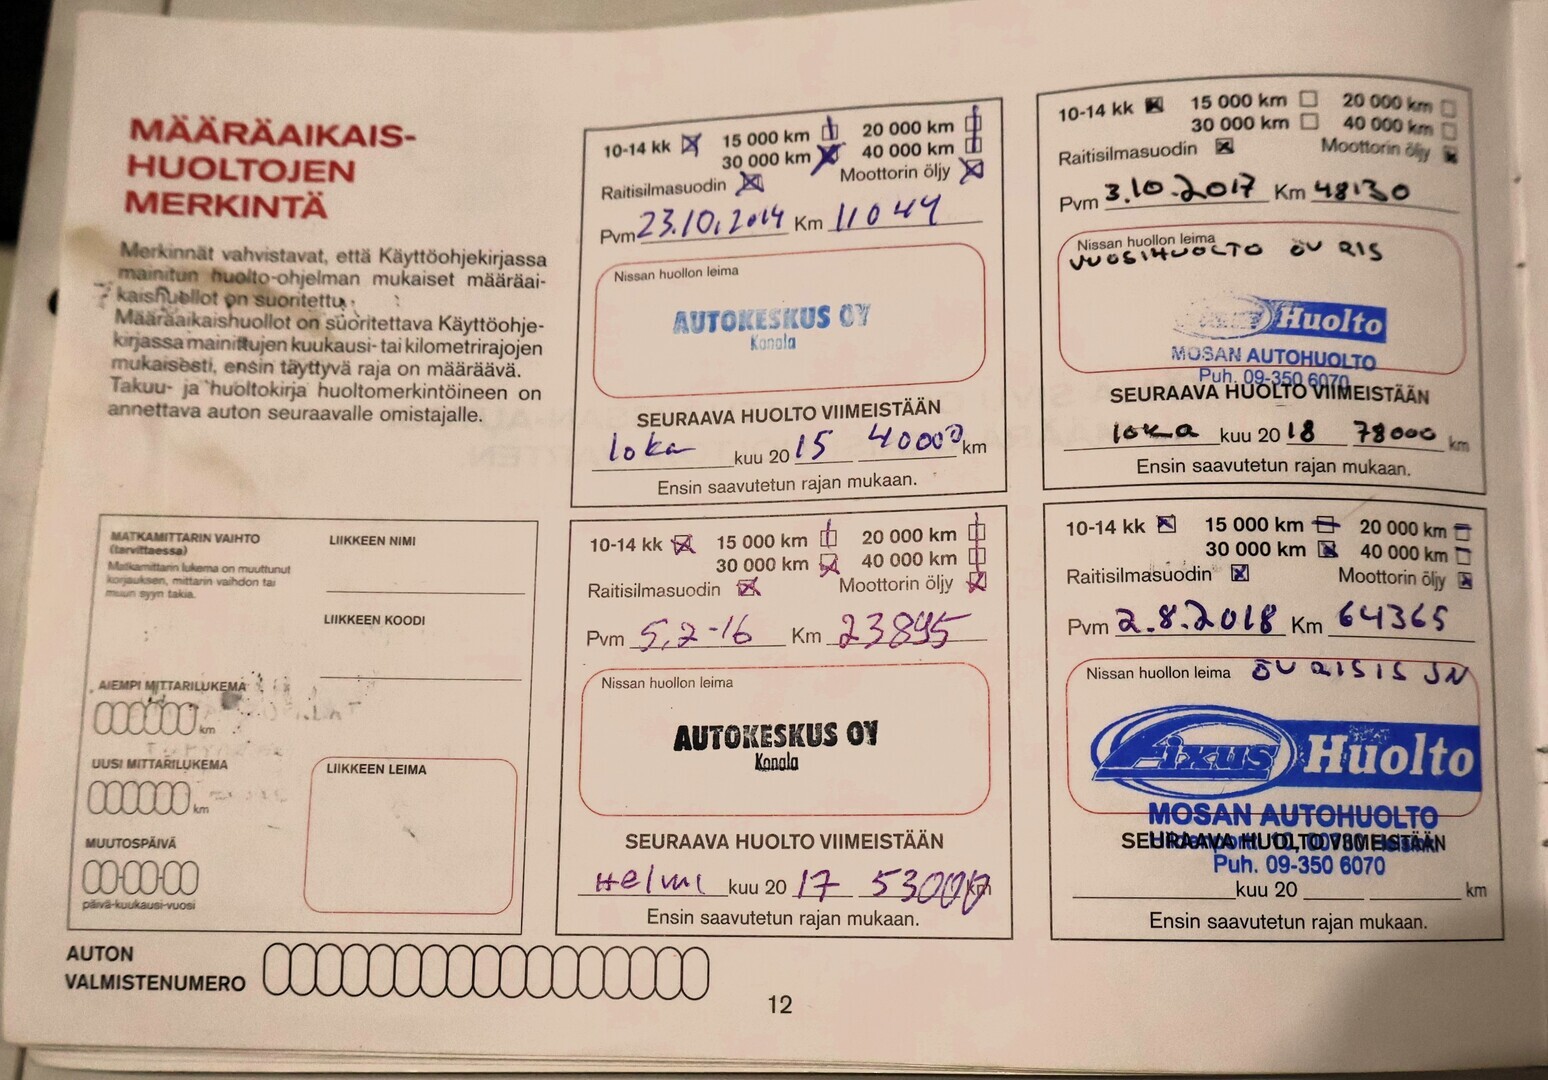 MÄÄRÄAIKAIS-
HUOLTOJEN
MERKINTÄ
Merkinnät vahvistavat, että Käyttöohjekirjassa
mainitun huolto-ohjelman mukaiset määräai-
kaishuollot on suoritettu.
Määräaikaishuollot on suoritettava Käyttöohje-
kirjassa mainittujen kuukausi- tai kilometrirajojen
mukaisesti, ensin täyttyvä raja on määräävä.
Takuu- ja huoltokirja huoltomerkintöineen on
annettava auton seuraavalle omistajalle.
MATKAMITTARIN VAIHTO
(tarvittaessa)
Matkamittarin lukema on muuttunut
korjauksen, mittarin vaihdon tai
muun syyn takia.
AIEMPI MITTARILUKEMA
km
UUSI MITTARILUKEMA
km
MUUTOSPÄIVÄ
päivä-kuukausi-vuosi
LIIKKEEN NIMI
LIIKKEEN KOODI
LIIKKEEN LEIMA
AUTON
VALMISTENUMERO
10-14 kk 15 000 km 20 000 km
30 000 km 40 000 km
Raitisilmasuodin Moottorin öljy
Pvm 23.10.2014 Km 11044
Nissan huollon leima
AUTOKESKUS OY
Konala
SEURAAVA HUOLTO VIIMEISTÄÄN
loka kuu 20 15 40000 km
Ensin saavutetun rajan mukaan.
10-14 kk 15 000 km 20 000 km
30 000 km 40 000 km
Raitisilmasuodin Moottorin öljy
Pvm 5,2-16 Km 23895
Nissan huollon leima
AUTOKESKUS OY
Konala
SEURAAVA HUOLTO VIIMEISTÄÄN
Helmi kuu 20 17 53000 km
Ensin saavutetun rajan mukaan.
10-14 kk 15 000 km 20 000 km
30 000 km 40 000 km
Raitisilmasuodin Moottorin öljy
Pvm 3.10.2017 Km 48130
Nissan huollon leima
VUOSIHUOLTO
Huolto
MOSAN AUTOHUOLTO
Puh. 09-350 6070
SEURAAVA HUOLTO VIIMEISTÄÄN
loka kuu 20 18 78000 km
Ensin saavutetun rajan mukaan.
10-14 kk 15 000 km 20 000 km
30 000 km 40 000 km
Raitisilmasuodin Moottorin öljy
Pvm 2.8.2018 Km 64365
Nissan huollon leima
Fixus Huolto
MOSAN AUTOHUOLTO
SEURAAVA HUOLTO VIIMEISTÄÄN
Puh. 09-350 6070
kuu 20 km
Ensin saavutetun rajan mukaan.
12